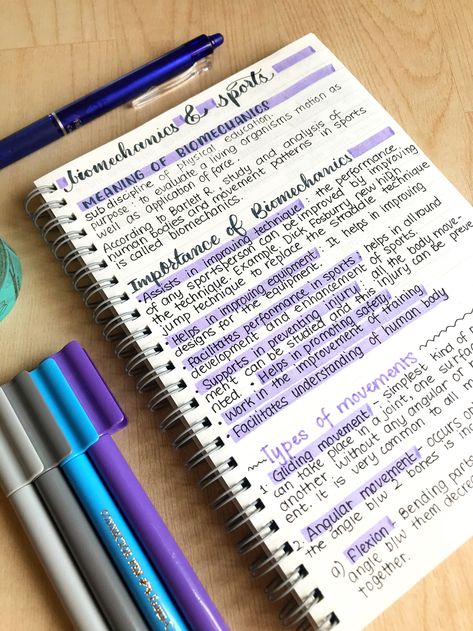 biomechanics & sports
MEANING OF BIOMECHANICS
Subdiscipline of physical education.
Purpose: to evaluate a living organisms motion as
well as application of force.
According to Bartlett R., study and analysis of
human bodies and movement patterns in sports
is called biomechanics.
Importance of Biomechanics
• Assists in improving technique: the performance
of any sportsperson can be improved by improving
the technique. Example, Dick Fosbury new high
jump technique to replace the straddle technique
• Helps in improving equipment: It helps in improving
designs for the equipment.
• Facilitates performance in sports: helps in allround
development and enhancement of sports.
• Supports in preventing injury: all the body move-
ment can be studied and this injury can be preve
nted.
• Helps in promoting safety
• Work in the improvement of training
• Facilitates understanding of human body
Types of movements
1. Gliding movement: simplest kind of
can take place in a joint, one surface
another without any angular or
ent. It is very common to all
2. Angular movement: occurs
the angle b/w 2 bones is inc
a) Flexion: Bending parts
angle b/w them decrea
together.